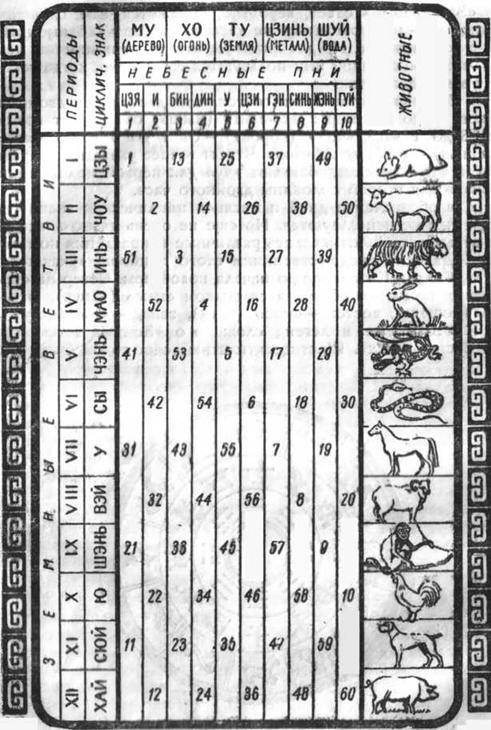 МУ ХО ТУ ЦЗИНЬ ШУЙ
(ДЕРЕВО) (ОГОНЬ) (ЗЕМЛЯ) (МЕТАЛЛ) (ВОДА)
ПЕРИОДЫ
ЦИКЛИЧ. ЗНАК
НЕБЕСНЫЕ ПНИ
ЖИВОТНЫЕ
ЦЗЯ И БИН ДИН У ЦЗИ ГЭН СИНЬ ЖЭНЬ ГУЙ
1 2 3 4 5 6 7 8 9 10
ЗЕМНЫЕ ВЕТВИ
I ЦЗЫ 1 13 25 37 49
II ЧОУ 2 14 26 38 50
III ИНЬ 51 3 15 27 39
IV МАО 52 4 16 28 40
V ЧЭНЬ 41 53 5 17 29
VI СЫ 42 54 6 18 30
VII У 31 43 55 7 19
VIII ВЭЙ 32 44 56 8 20
IX ШЭНЬ 21 33 45 57 9
X Ю 22 34 46 58 10
XI СЮЙ 11 23 35 47 59
XII ХАЙ 12 24 36 48 60